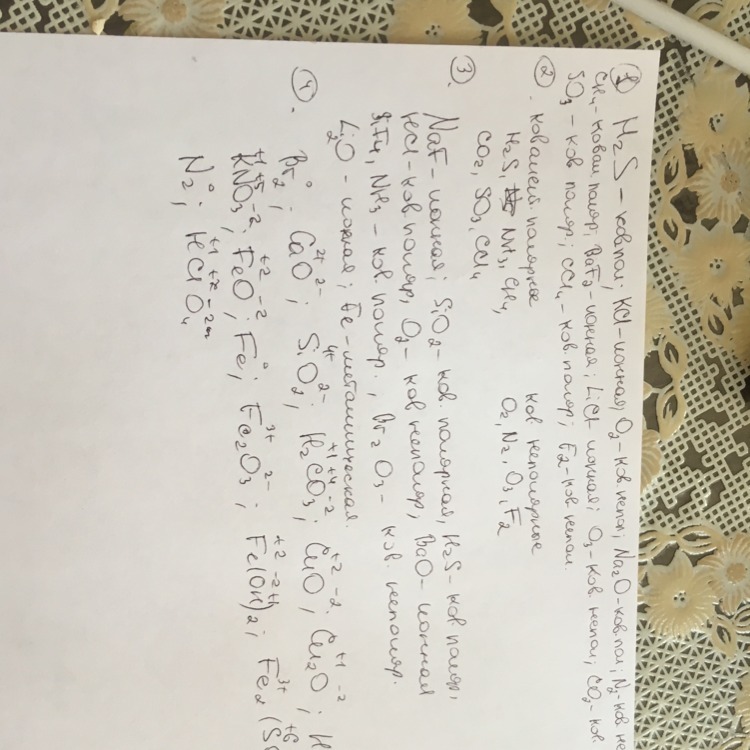 1 H2S – ков пол; KCl – ионная; O2 – ков. непол; Na2O – ков. пол; N2 – ков. не
CH4 – ковал поляр; BaF2 – ионная; LiCl ионная; O3 – ков. непол; CO2 – ков
SO3 – ков поляр; CCl4 – ков. поляр; F2 – ков непол.
2. ковалент полярное ков неполярные
H2S, NH3, CH4, O2, N2, O3, F2
CO2, SO3, CCl4
3. NaF – ионная; SiO2 – ков. полярная, H2S – ков поляр,
HCl – ков поляр, O3 – ков неполяр, BaO – ионная
NH3 – ков. поляр., Br2O3 – ков. неполяр.
Li2O – ионная; Fe – металлическая.
4. Br2⁰; Ca²⁺O²⁻; Si⁴⁺O2²⁻; H2⁺¹C⁺⁴O3⁻²; Cu⁺²O⁻²; Cu2⁺¹O⁻²; H
K⁺¹N⁺⁵O3⁻²; Fe⁺²O⁻²; Fe⁰; Fe2³⁺O3²⁻; Fe⁺²(O⁻²H⁺¹)2; Fe2³⁺(S⁺⁶O
N2⁰; H⁺¹Cl⁺⁷O4⁻²